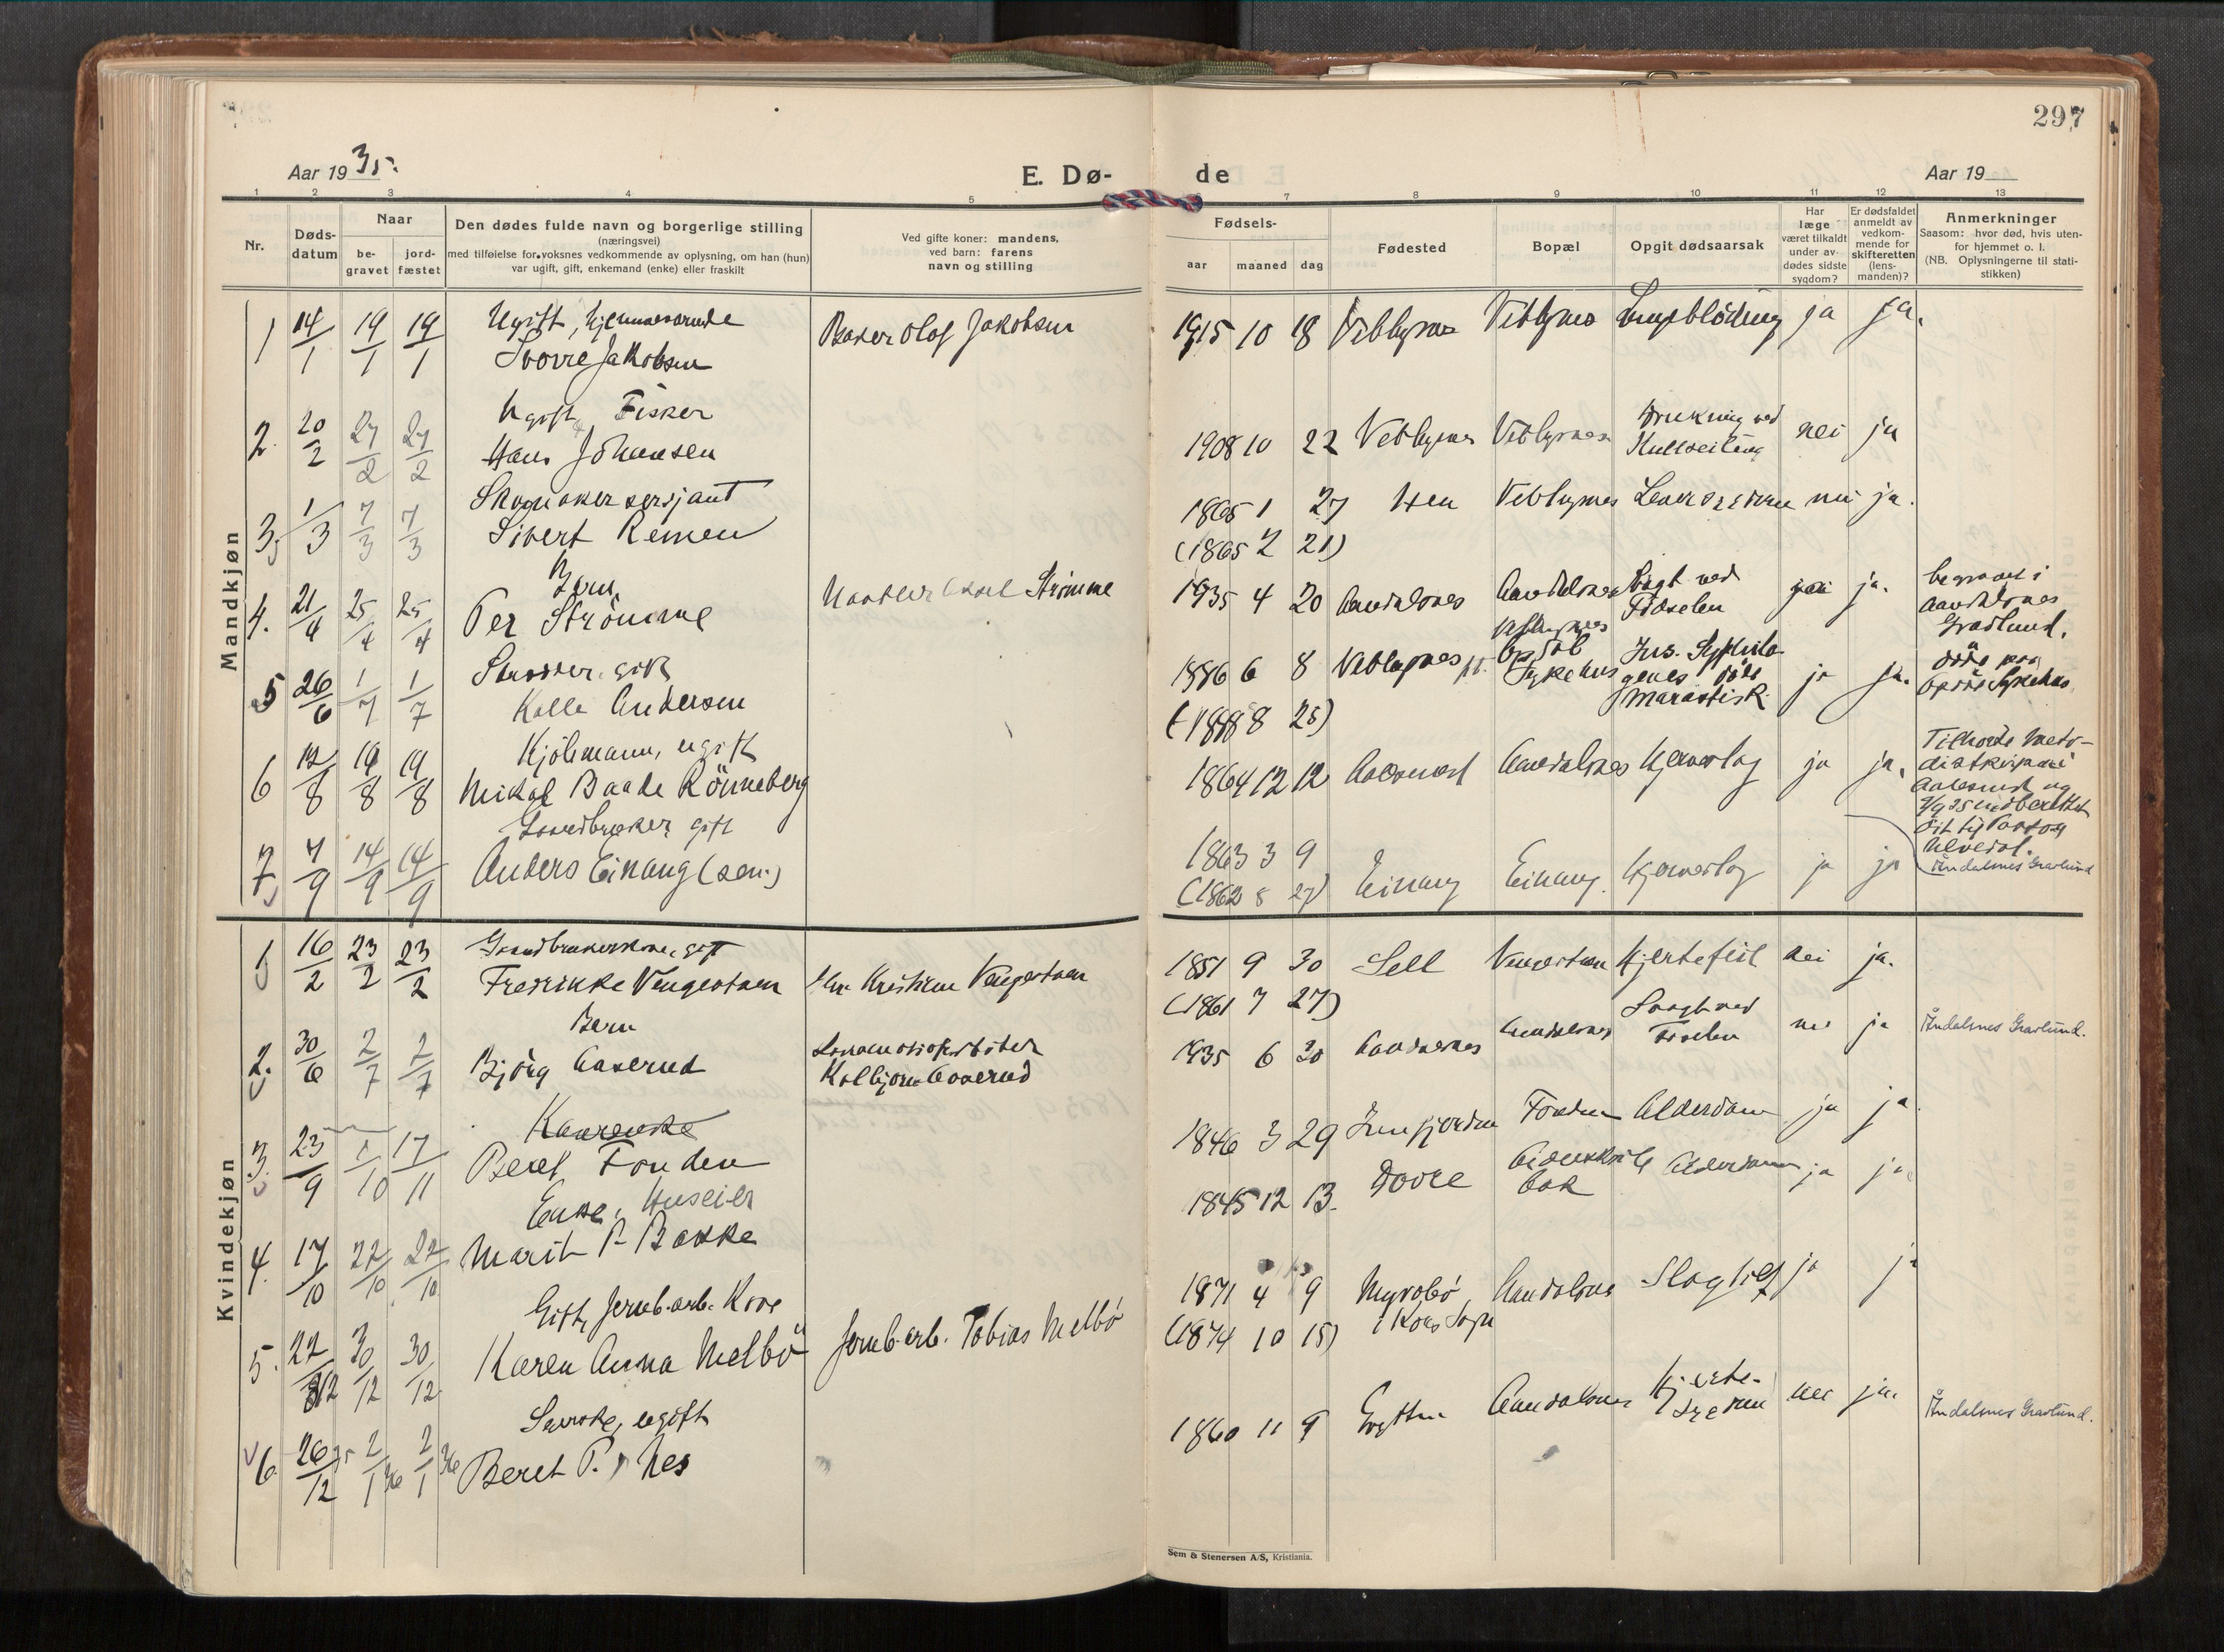 297
Aar 1935.
E. Dø-
de
Aar 19
1 2 3 4 5 6 7 8 9 10 11 12 13
Nr.
Døds-
datum
Naar
be-
gravet
jord-
fæstet
Den dødes fulde navn og borgerlige stilling
(næringsvei)
med tilføielse for voksnes vedkommende av oplysning, om han (hun)
var ugift, gift, enkemand (enke) eller fraskilt
Ved gifte koner: mandens,
ved barn: farens
navn og stilling
Fødsels-
aar maaned dag
Fødested
Bopæl
Opgit dødsaarsak
Har
læge
været tilkaldt
under av-
dødes sidste
sygdom?
Er dødsfaldet
anmeldt av
vedkom-
mende for
skifteretten
(lens-
manden)?
Anmerkninger
Saasom: hvor død, hvis uten-
for hjemmet o. l.
(NB. Oplysningerne til stati-
stikken)
Mandkjøn
Ugift, hjemmeværende
1 14/1 19/1 19/1 Sverre Jakobsen Baker Olaf Jakobsen 1915 10 18 Veblugnes Veblugnes Lungeblödning ja ja.
Ugift, Fisker
2. 20/2 27/2 27/2 Hans Johansen 1908 10 22 Veblungnes Veblungnes Drukning ved
Kullseiling nei ja
Skomaker sersjant
3. 1/3 7/3 7/3 Sivert Remen 1865 1 27 Hen Veblugnes nei ja.
(1865 2 21)
Barn
4. 21/4 25/4 25/4 Per Strömme Strömme 1935 4 20 Aandalsnes Aandalsnes Qvalt ved
Födselen ja.
begravet i
Aandalsnes
Gravlund.
gift
5 26/6 1/7 1/7 Kalle Andersen 1886 6 8 Veblugnes Opdöl
Sykehus
marastisk ja ja.
döde paa
Opdöl Sykehus
(1888 25)
Kjöbmann, ugift
6 12/8 19/8 19/8 Mikal Baade Rönneberg 1864 12 12 Aalesund Aandalsnes Hjerneslag ja ja.
Tilhörte Meto-
distkirken i
Aalesund og
Gaardbruker gift
7 7/9 14/9 14/9 Anders Einang (sen.) 1863 3 9
(1862 8 27) Einang Einang. Hjerneslag ja ja
Åndalsnes Gravlund
Kvindekjøn
Gaardbrukerkone, gift
1 16/2 23/2 23/2 Fredrikke Vengestaen Kristian Vengestaen 1851 9 30 Sell Vengestaen Hjertefeil nei ja.
(1861 7 27)
Barn
2. 30/6 2/7 2/7 Björg Aaserud Lokomotivfyrböter
Kolbjörn Aaserud 1935 6 30 Aandalsnes Aandalsnes Qvalt ved
Födselen nei ja Åndalsnes Gravlund.
Kaarenke
3. 23/9 1/10 17/11 Beret Fonden 1846 3 29 Innfjorden Fonden Alderdom ja ja
Enke, Huseier
4. 17/10 22/10 22/10 Marit P. Bakke 1845 12 13. Dovre Alderdom ja ja
Gift, Jernb.arb. Kone
5. 22/12 30/12 30/12 Karen Anna Melbö Jernb.arb. Tobias Melbö 1871 4 9 Myrabö
i Kors Sogn Aandalsnes Slagtilf. ja ja
(1874 10 15)
ugift
6 26/12 35 2/1 36 2/1 36 Beret P. Nes 1860 11 9 Grytten Aandalsnes nei ja. Åndalsnes Gravlund.
Sem & Stenersen A/S, Kristiania.